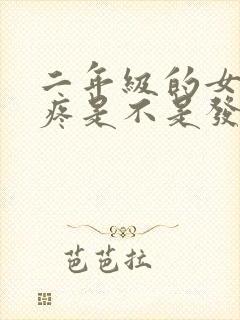 二年級的女
疼是不是發
芭芭拉